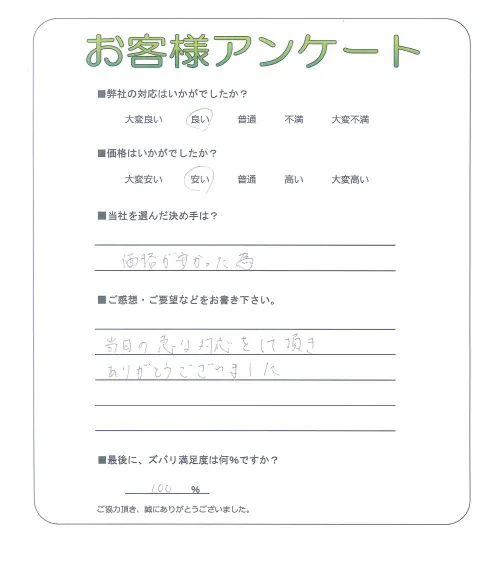 お客様アンケート
■弊社の対応はいかがでしたか？
大変良い 良い 普通 不満 大変不満
■価格はいかがでしたか？
大変安い 安い 普通 高い 大変高い
■当社を選んだ決め手は？
価格が安かった為
■ご感想・ご要望などをお書き下さい。
当日の急な対応をして頂き
ありがとうございました
■最後に、ズバリ満足度は何%ですか？
100 %
ご協力頂き、誠にありがとうございました。